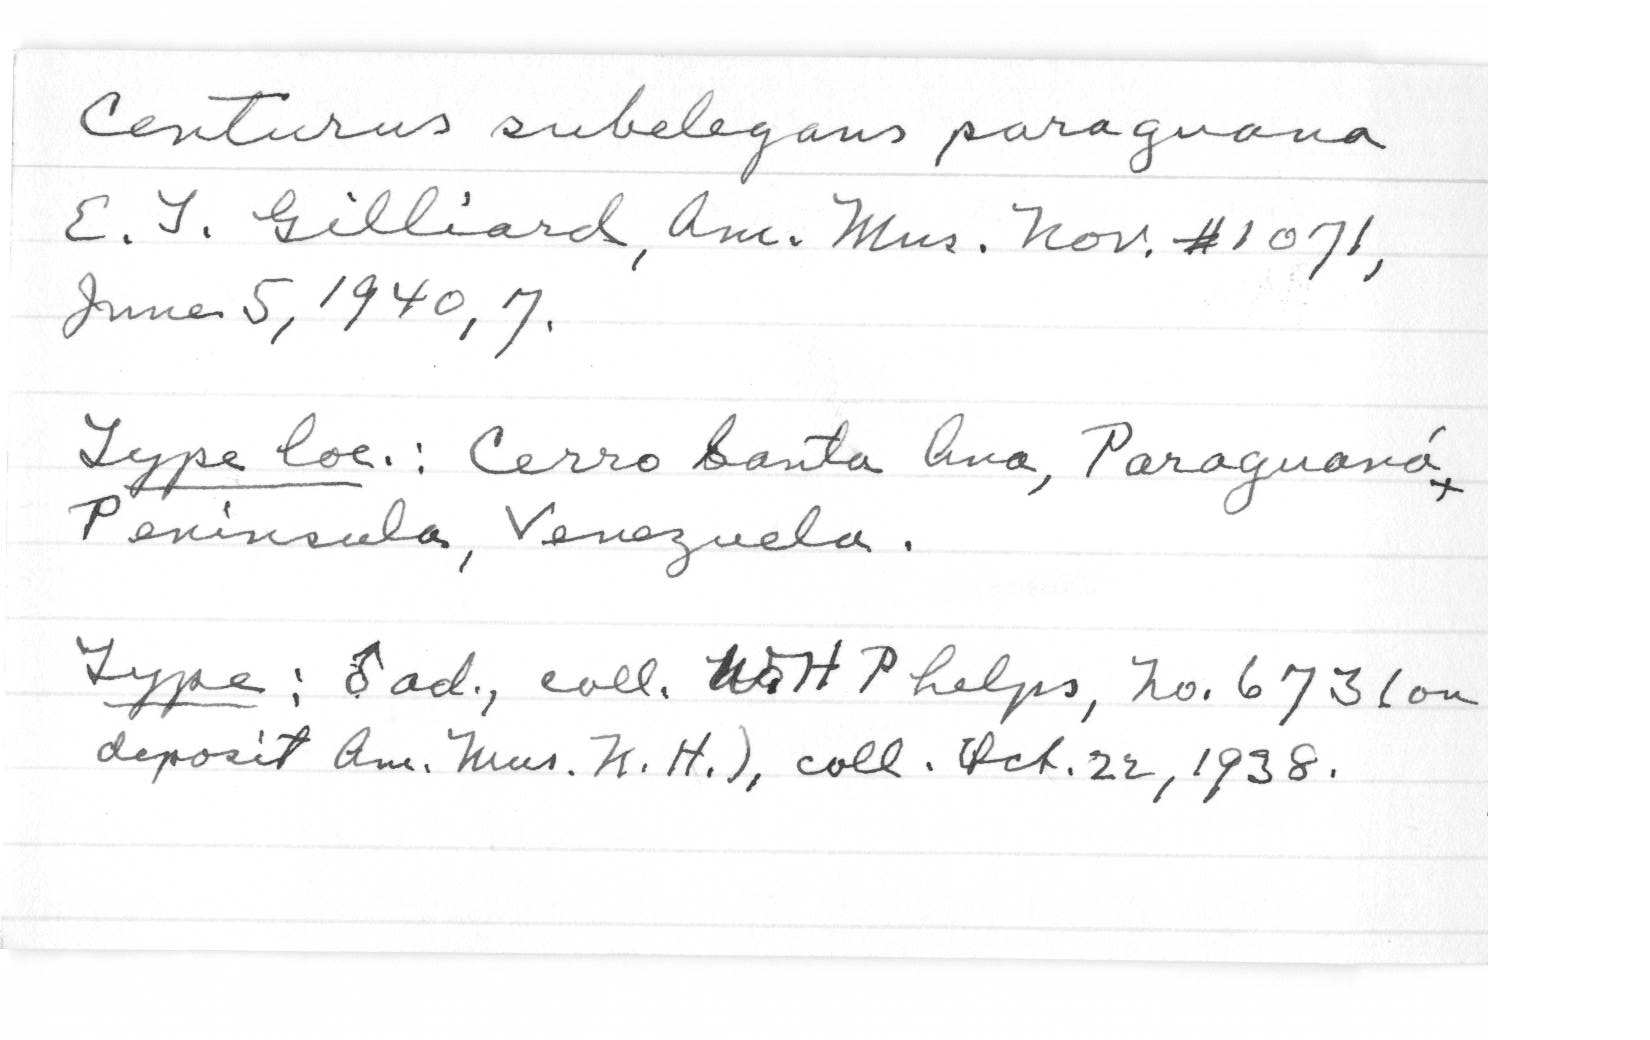 Centurus subelegans paraguana
E. T. Gilliard, Am. Mus. Nov. #1071,
June 5, 1940, 7.
Type loc.: Cerro Santa Ana, Paraguaná
Peninsula, Venezuela.
Type: ♂ ad., coll. W. H Phelps, No. 673 (on
deposit Am. Mus. N. H.), coll. Oct. 22, 1938.